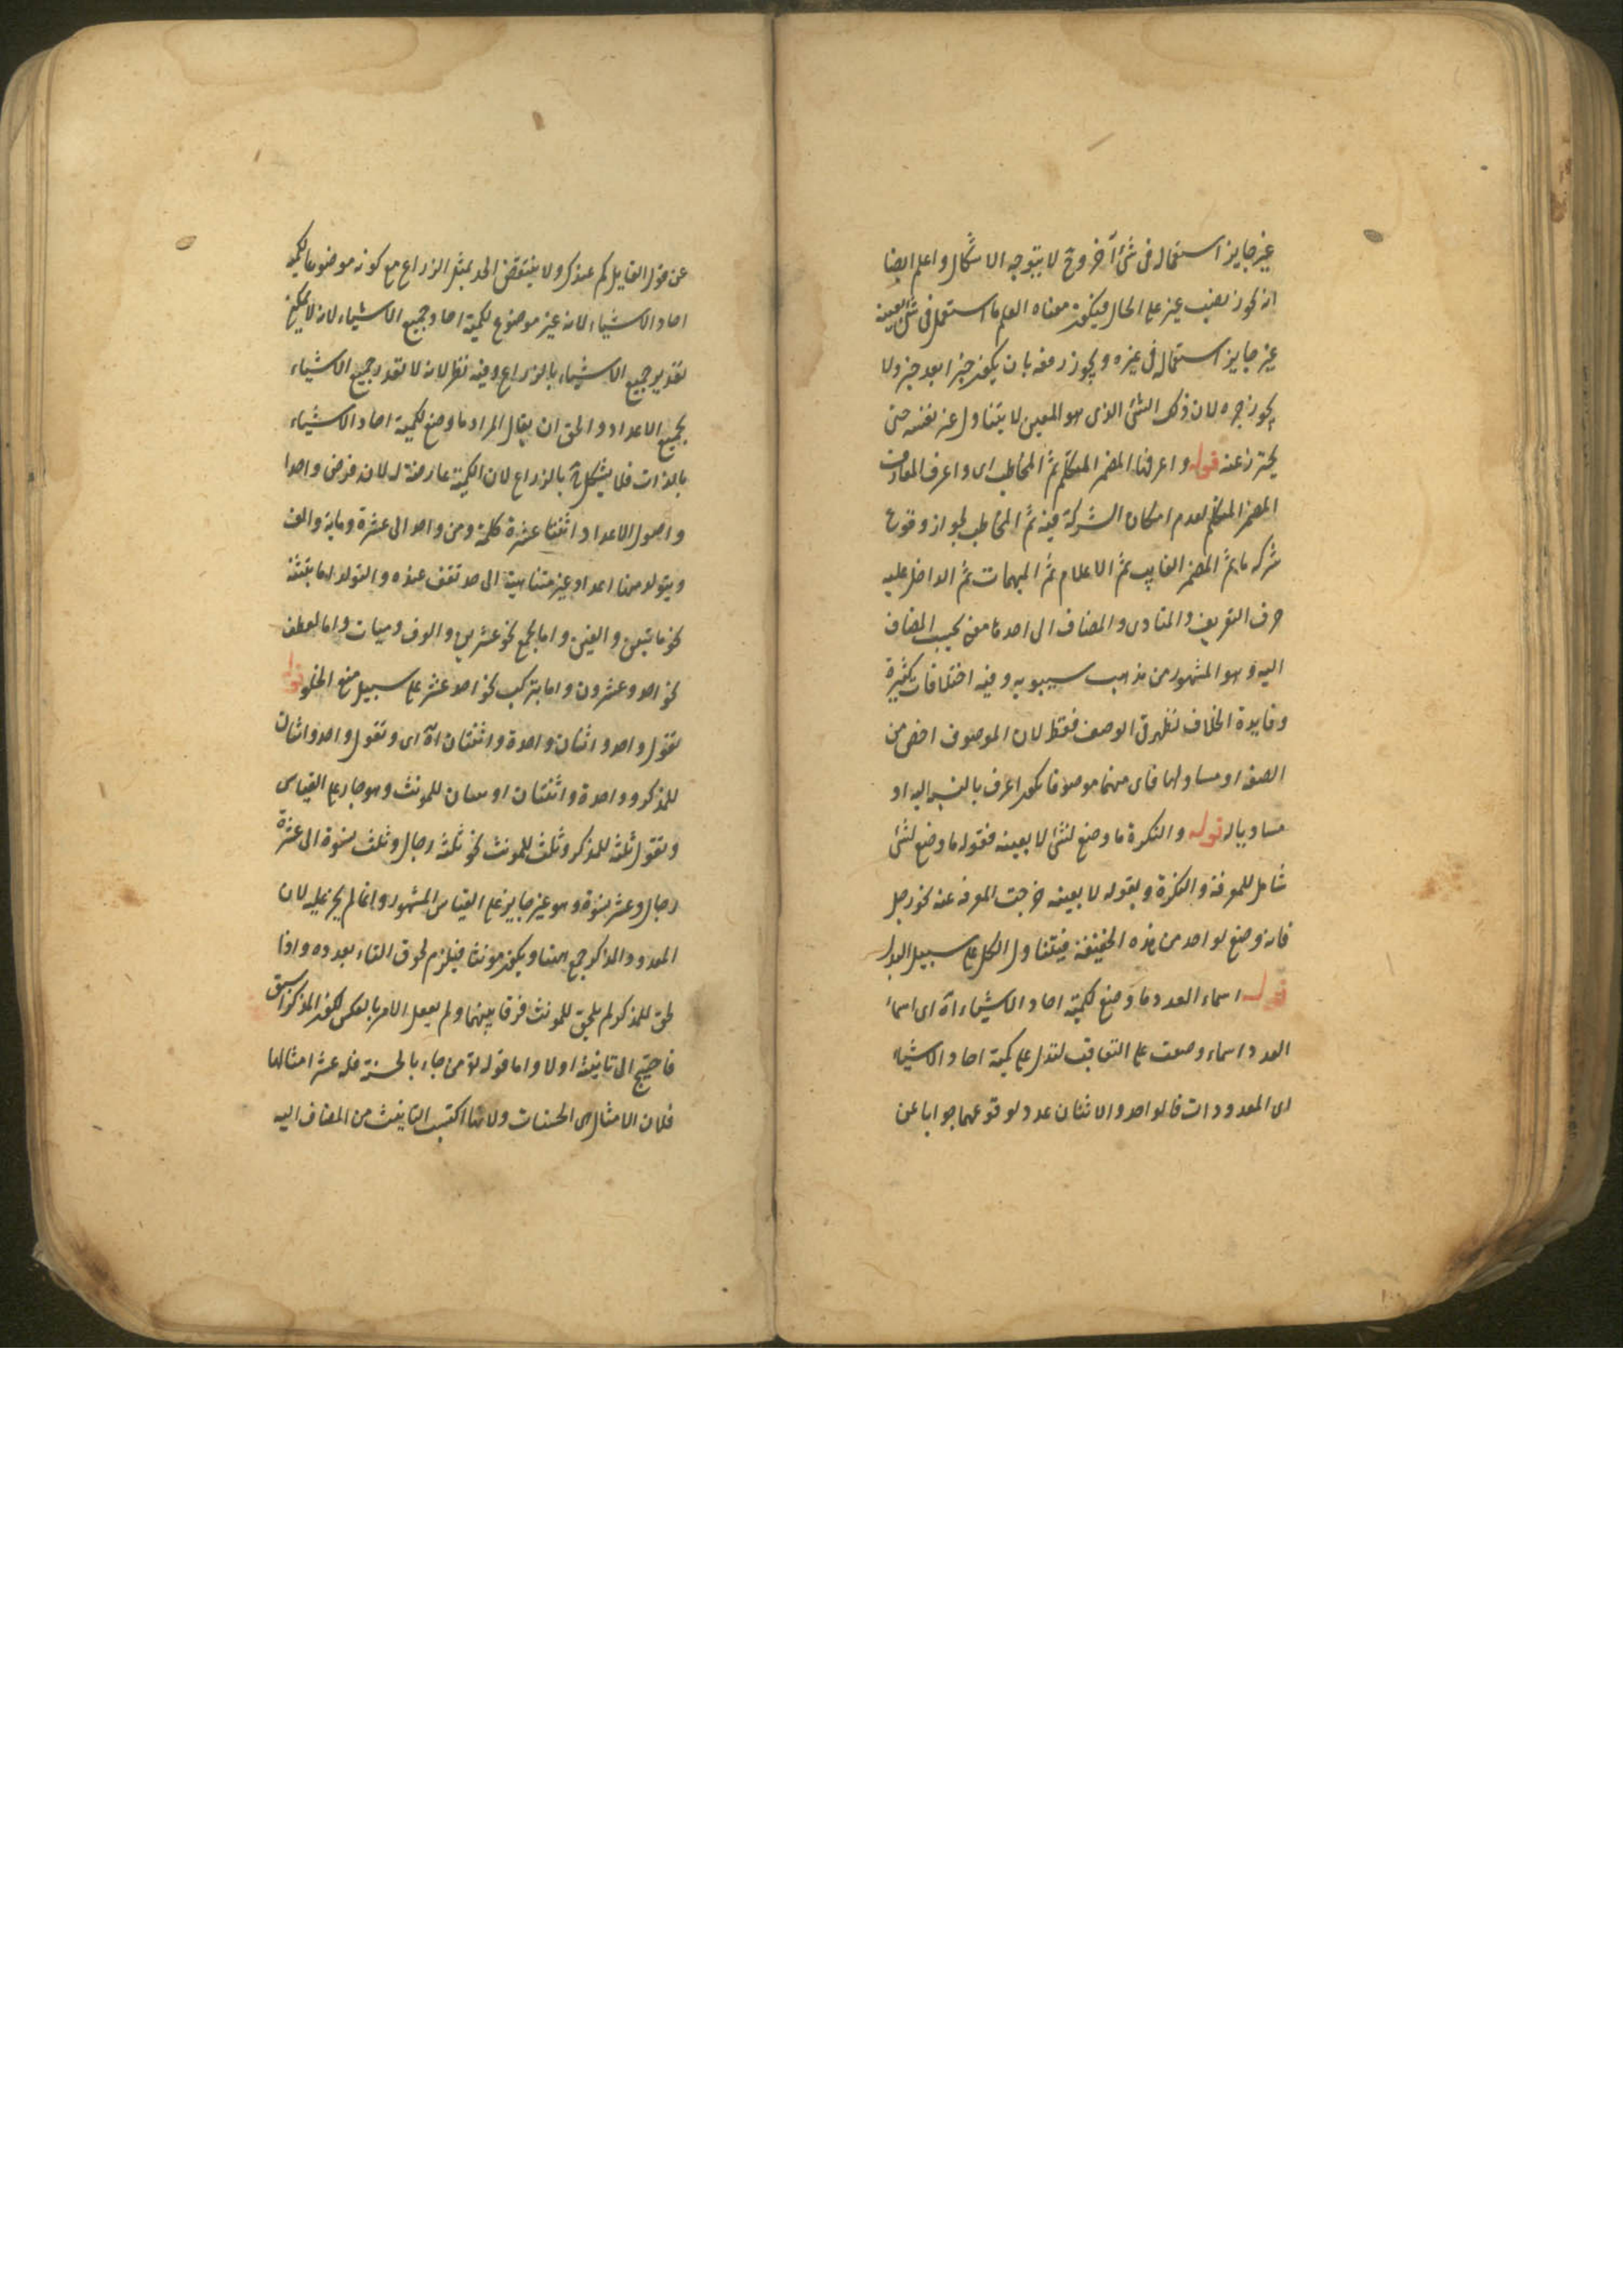 غير جايز استعماله فى شئ آخر وح لا يتوجه الاشكال واعلم ايضا
انه يجوز نصب غير على الحال فيكون معناه العلم ما استعمل فى شئ بعينه
غير جايز استعماله فى غيره ويجوز رفعه بان يكون خبرا بعد خبر ولا
يجوز جره لان ذلك الشئ الذى هو المعين لا يتناول غير نفسه حتى
يحترز عنه قوله واعرفها المضمر المتكلم ثم المخاطب اى واعرف المعارف
المضمر المتكلم لعدم امكان الشركة فيه ثم المخاطب لجواز وقوع
شركة ما ثم المضمر الغايب ثم الاعلام ثم المبهمات ثم الداخل عليه
حرف التعريف والمنادى والمضاف الى احدها معنى بحسب المضاف
اليه وهو المشهور من مذهب سيبويه وفيه اختلافات كثيرة
وفايدة الخلاف تظهر فى الوصف فقط لان الموصوف اخص من
الصفة او مساو لها فاى منهما موصوفا يكون اعرف بالنسبة اليه او
مساويا له قوله والنكرة ما وضع لشئ لا بعينه فقوله ما وضع لشئ
شامل للمعرفة والنكرة وبقوله لا بعينه خرجت المعرفة عنه نحو رجل
فانه وضع لواحد من هذه الحقيقة فيتناول الكل على سبيل البدل
قوله اسماء العدد ما وضع لكمية احاد الاشياء اه اى اسماء
العدد اسماء وضعت على التعاقب لتدل على كمية احاد الاشياء
اى المعدودات فالواحد والاثنان عدد لوقوعهما جوابا عن
عن قول القايل كم عندك ولا ينتقض الحد بمثل الذراع مع كونه موضوعا لكمية
احاد الاشياء لانه غير موضوع لكمية احاد جميع الاشياء لانه لا يمكن
تقدير جميع الاشياء بالذراع وفيه نظر لانه لا تقدر جميع الاشياء
بجميع الاعداد والحق ان يقال المراد ما وضع لكمية احاد الاشياء
بالذات فلا يشكل ح بالذراع لان الكمية عارضة له لانه فرض واحدا
واصول الاعداد اثنتا عشرة كلمة ومن واحد الى عشرة ومائة والف
ويتولد منها اعداد غير متناهية الى حد تقف عنده والتولد اما بتثنية
نحو مايتين والفين واما بجمع نحو عشرين والوف ومئات واما بعطف
نحو احد وعشرون واما بتركيب نحو احد عشر على سبيل منع الخلو قوله
تقول واحد اثنان واحدة واثنتان اه اى وتقول واحد واثنان
للمذكر وواحدة واثنتان او ثنتان للمونث وهو جار على القياس
وتقول ثلثة للمذكر وثلث للمونث نحو ثلثة رجال وثلث نسوة الى عشرة
رجال وعشر نسوة وهو غير جايز على القياس المشهور وانما لم يجز عليه لان
المعدود المذكر جمع ههنا ويكون مونثا فيلزم لحوق التاء بعدده واذا
لحق للمذكر لم يلحق للمونث فرقا بينهما ولم يفعل الامر بالعكس لكون المذكر اسبق
فاحتيج الى تانيثه اولا واما قوله تع من جاء بالحسنة فله عشر امثالها
فلان الامثال هى الحسنات ولانها اكتسب التانيث من المضاف اليه